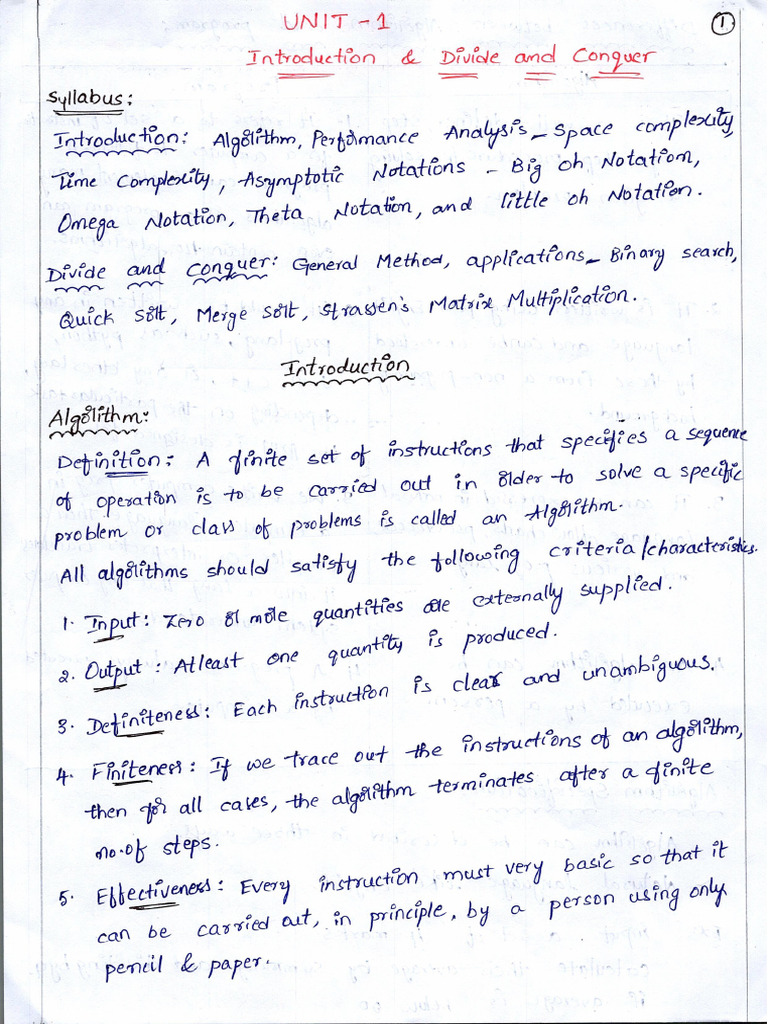 UNIT - 1
1
Introduction & Divide and Conquer
Syllabus:
Introduction: Algorithm, Performance Analysis - Space complexity,
Time Complexity, Asymptotic Notations - Big oh Notation,
Omega Notation, Theta Notation, and little oh Notation.
Divide and Conquer: General Method, applications - Binary search,
Quick Sort, Merge Sort, Strassen's Matrix Multiplication.
Introduction
Algorithm:
Definition: A finite set of instructions that specifies a sequence
of operation is to be carried out in order to solve a specific
problem or class of problems is called an Algorithm.
All algorithms should satisfy the following criteria/characteristics.
1. Input: Zero or more quantities are externally supplied.
2. Output: Atleast one quantity is produced.
3. Definiteness: Each instruction is clear and unambiguous.
4. Finiteness: If we trace out the instructions of an algorithm,
then for all cases, the algorithm terminates after a finite
no. of steps.
5. Effectiveness: Every instruction must very basic so that it
can be carried out, in principle, by a person using only
pencil & paper.